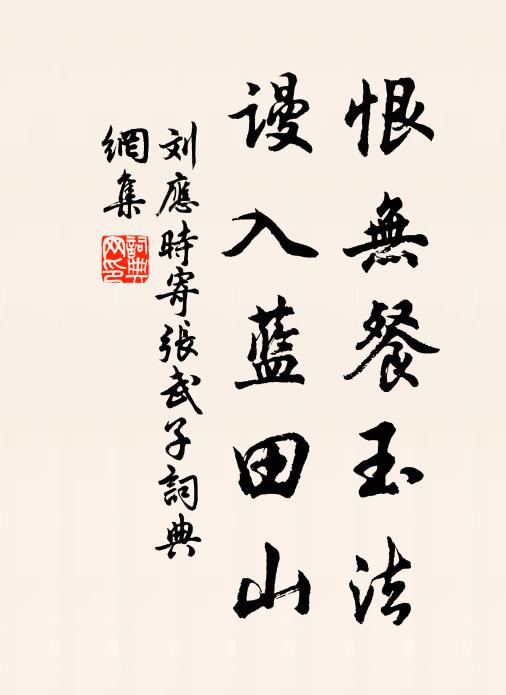 恨無餐玉法
謾入藍田山
刘應時寄張武子詞典
網集
詞典网印